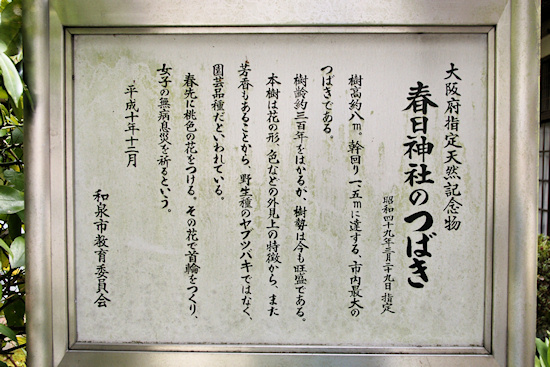 大阪府指定天然記念物
春日神社のつばき
昭和四十九年三月二十九日指定
樹高約八m。幹回り一・五mに達する、市内最大の
つばきである。
樹齢約三百年をはかるが、樹勢は今も旺盛である。
本樹は花の形、色などの外見上の特徴から、また
芳香もあることから、野生種のヤブツバキではなく、
園芸品種だといわれている。
春先に桃色の花をつける。その花で首輪をつくり、
女子の無病息災を祈るという。
平成十年十二月
和泉市教育委員会